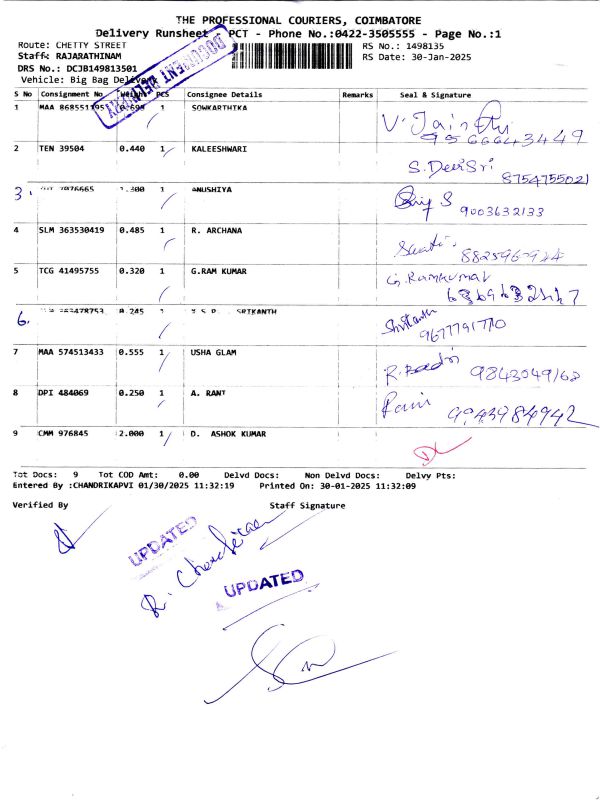 THE PROFESSIONAL COURIERS, COIMBATORE
Delivery Runsheet PCT - Phone No.:0422-3505555 - Page No.:1
Route: CHETTY STREET RS No.: 1498135
Staff: RAJARATHINAM RS Date: 30-Jan-2025
DRS No.: DCJB149813501
Vehicle: Big Bag Delivery
S No Consignment No Weight PCS Consignee Details Remarks Seal & Signature
1 MAA 1 SOWKARTHIKA
9566643449
2 TEN 39504 0.440 1 KALEESHWARI S. Devi Sri
8754755021
3. 7076665 1.300 1 ANUSHIYA S 9003632133
4 SLM 363530419 0.485 1 R. ARCHANA
5 TCG 41495755 0.320 1 G.RAM KUMAR G. Ramkumar
6. 0.245 1 SRIKANTH Srikanth
9677791770
7 MAA 574513433 0.555 1 USHA GLAM
9843049168
8 DPI 484069 0.250 1 A. RANI Rani
9 CMM 976845 2.000 1 D. ASHOK KUMAR
Tot Docs: 9 Tot COD Amt: 0.00 Delvd Docs: Non Delvd Docs: Delvy Pts:
Entered By :CHANDRIKAPVI 01/30/2025 11:32:19 Printed On: 30-01-2025 11:32:09
Verified By Staff Signature
UPDATED
UPDATED